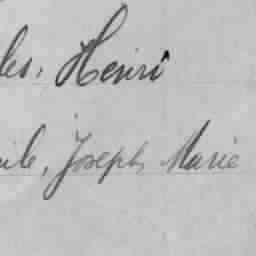 les, Henri
ile, Joseph Marie